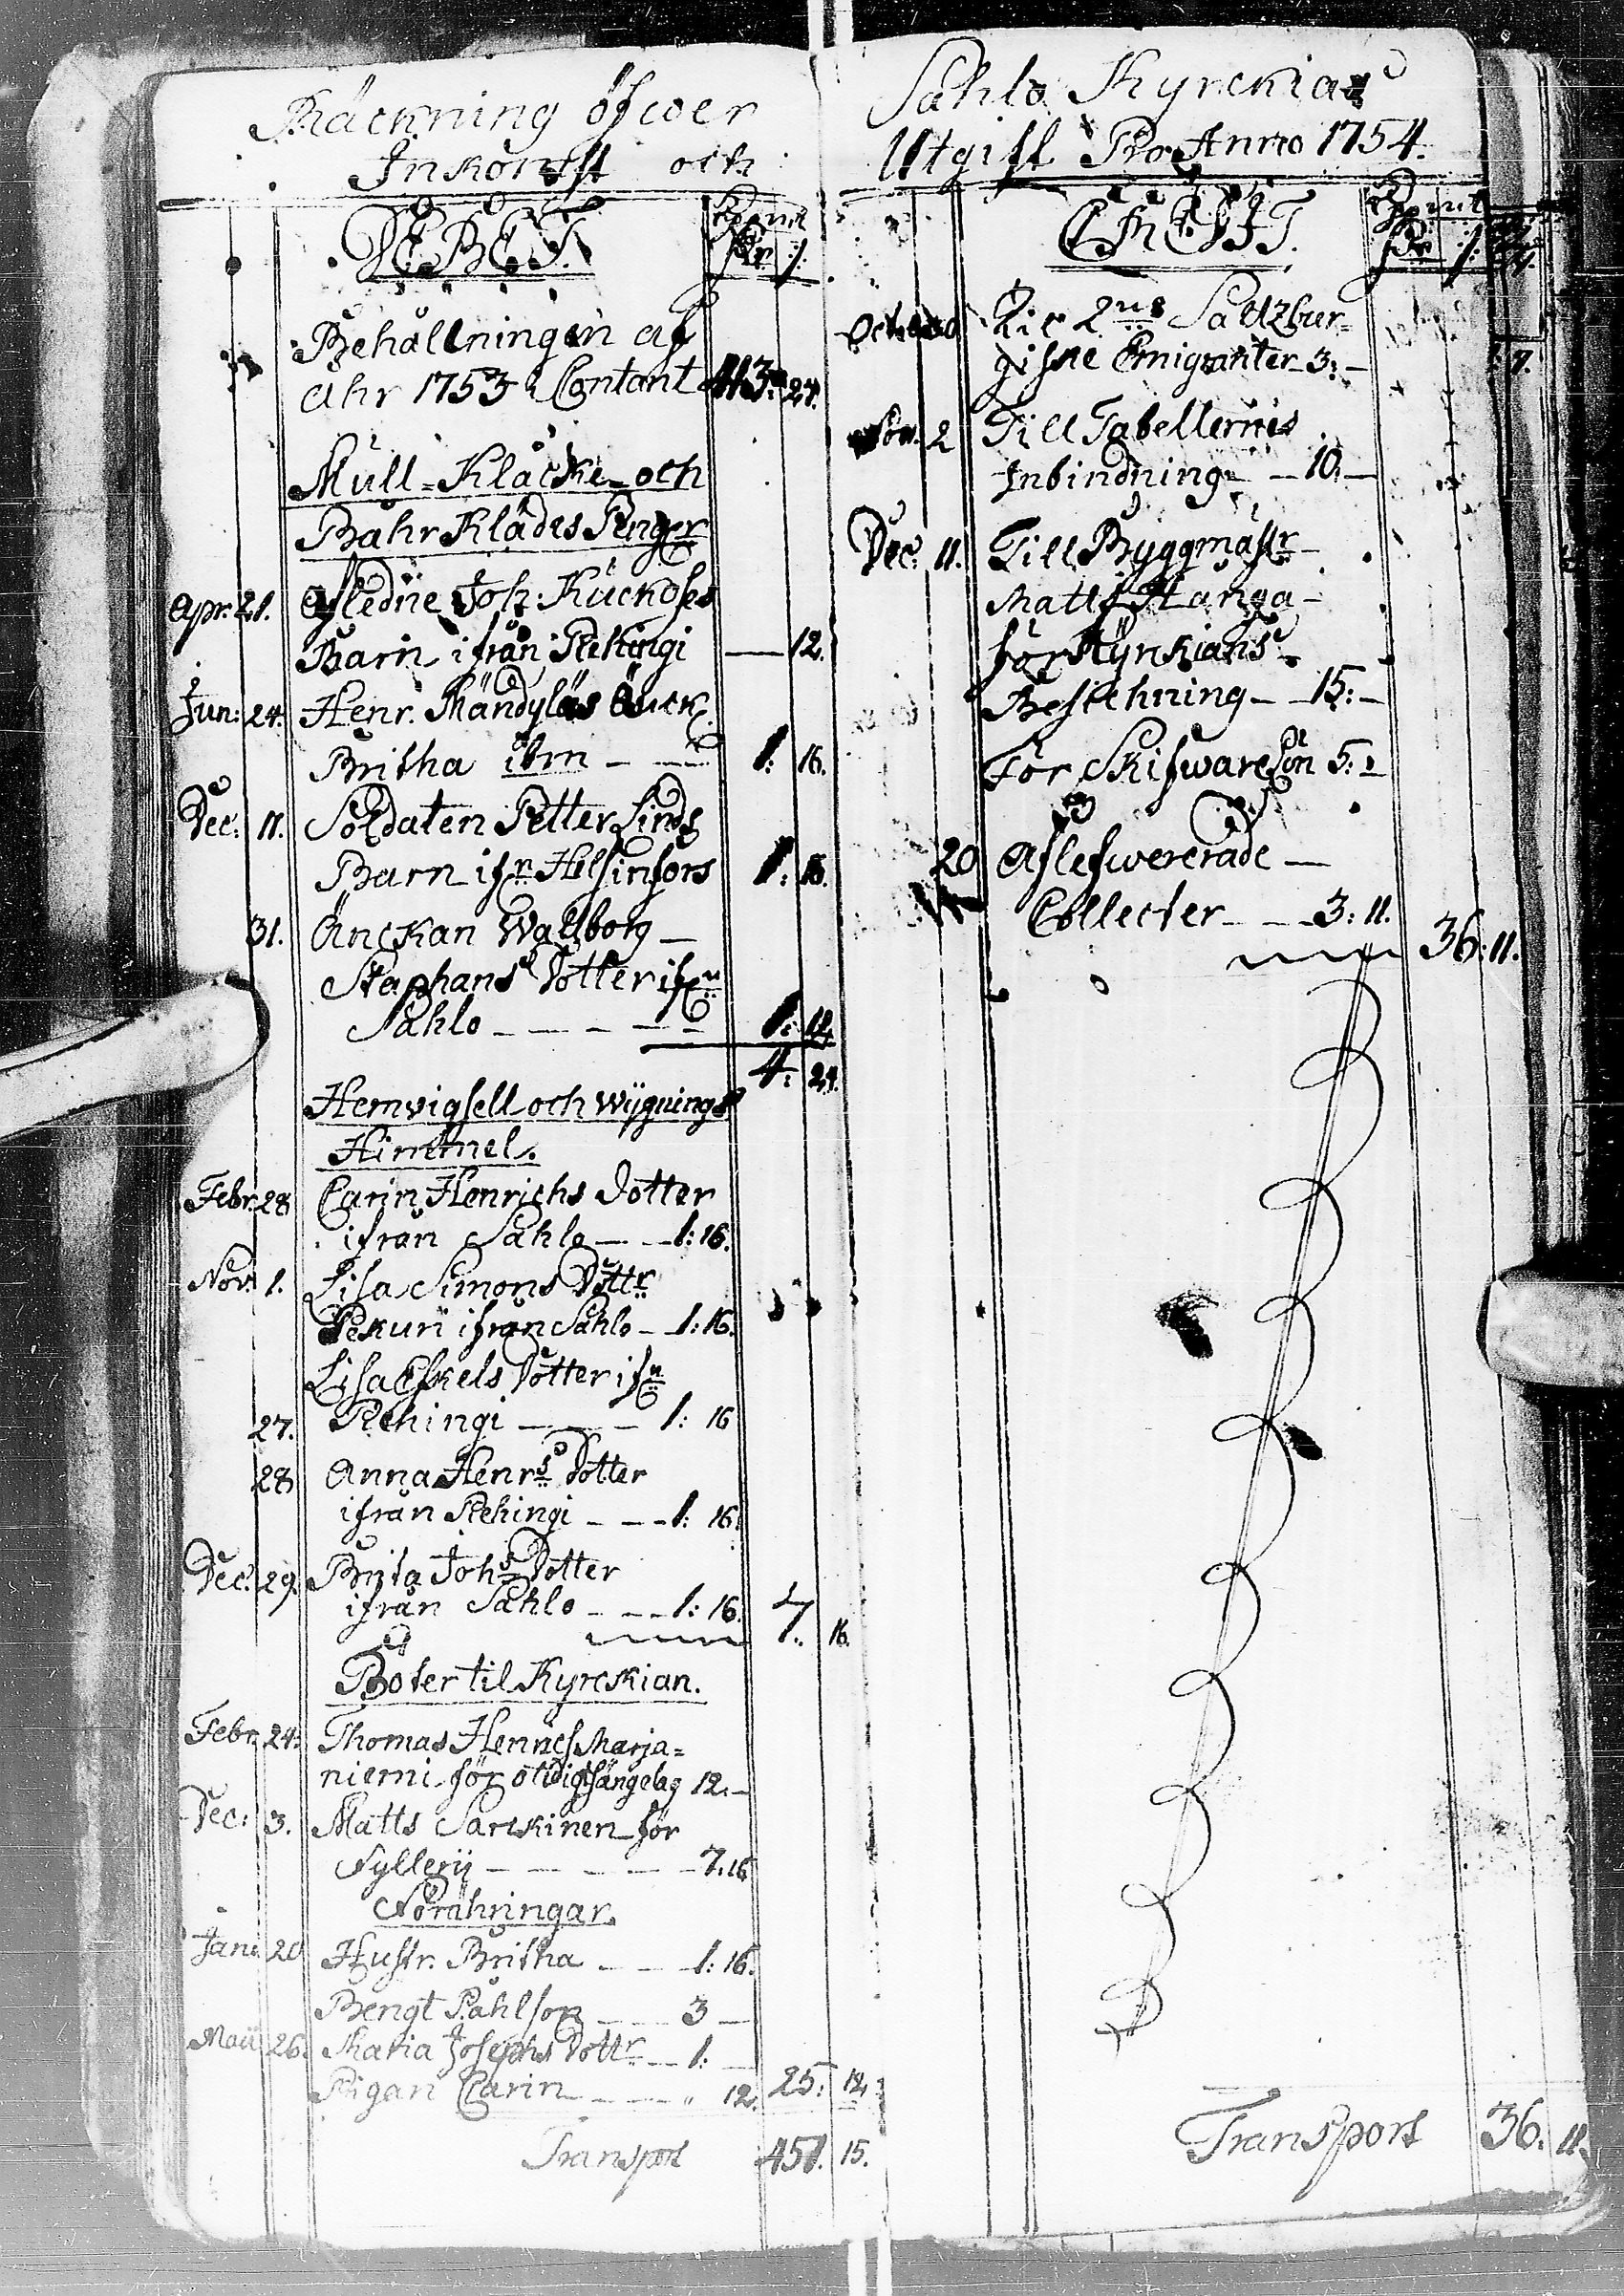 Räckning öfwer
Inkomst och
DEBET.
Behållningen af
åhr 1753 Contant 413: 24.
Mull-Klåcke-och
Bahr Klädes Penger
Apr. 21. Afledne Joh: Kuckoses
Barn ifrån Rekingi — 12.
Jun: 24. Henr. Mändyläs Enck.
Britha ibm — 1: 16.
Dec: 11. Soldaten Petter Linds
Barn ifn Helsinfors 1: 16.
31. Änckan Wallborg —
Staphans Dotter ifrn
Sahlo — — — 1: 12.
4: 24.
Hemvigsell och Wygnings
Himmel.
Febr. 28 Carin Henrichs Dotter
ifrån Sahlo — 1: 16.
Nov. 1. Lisa Simons Dottr
Pekuri ifrån Sahlo — 1: 16.
Lisa Eskels Dotter ifn
27. Rekingi — — — 1: 16
28 Anna Henrs Dotter
ifrån Rekingi — — 1: 16.
Dec. 29. Brita Johs Dotter
ifrån Sahlo — — 1: 16. 7: 16.
Böter til Kyrckian.
Febr. 24: Thomas Hennes Marja=
niemi för otidigt sängelag 12. —
Dec: 3. Matts Sarckinen för
Fyllerij — — — 7. 16
Förähringar.
Jan. 20 Hustr. Britha — — 1: 16.
Bengt Påhlson — — 3 —
Maii 26. Maria Josephs Dottr — 1: —
Pigan Carin — — " 12. 25: 12.
Transport 451. 15.
Sahlo Kyrckias
Utgift Pro Anno 1754.
CREDIT.
Octob. 20 Saltzbur=
giske Emigranter 3: —
Nov. 2 Till Tabellernes
Inbindning — 10. —
Dec: 11. Till Byggmästr —
Matts Hanga —
för Kyrkians
Besichning — 15: —
För Skifwaresön 5: —
20 Aflefwererade —
Collecter — — 3: 11. 36: 11.
Transport 36. 11.